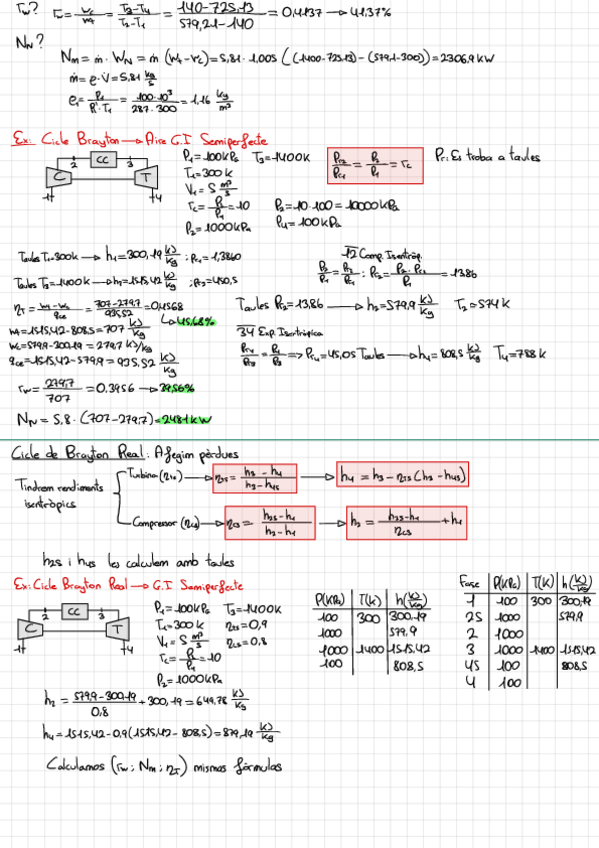 rw? rw = wc/wt = T2-T1/T3-T4 = 140-725,13/579,21-140 = 0,4137 → 41,37%
NN?
Nm = ṁ · WN = ṁ (wt-wc) = 5,81 · 1,005 ((1400-725,13) - (579,1-300)) = 2306,9 kW
ṁ = ρ · V̇ = 5,81 kg/s
ρ1 = P1/R'·T1 = 100·10³/287·300 = 1,16 kg/m³
Ex: Cicle Brayton → Aire G.I Semiperfecte
P1 = 100 kPa T3 = 1400 K
T1 = 300 k
V1 = 5 m³/s
rc = P2/P1 = 10
P2 = 1000 kPa
Pr2/Pr1 = P2/P1 = rc
Pr: Es troba a taules
P2 = 10·100 = 10000 kPa
P4 = 100 kPa
2 CC 3
C T
1 4
Taules T1 = 300k → h1 = 300,19 kJ/kg ; Pr1 = 1,3860
Taules T3 = 1400 k → h3 = 1515,42 kJ/kg ; Pr3 = 450,5
12 Comp. Isentròp.
P2/P1 = Pr2/Pr1 ; Pr2 = P2·Pr1/P1 = 13,86
Taules Pr2 = 13,86 → h2 = 579,9 kJ/kg T2 = 574 k
34 Exp. Isentròpica
Pr4/Pr3 = P4/P3 => Pr4 = 45,05 Taules → h4 = 808,5 kJ/kg T4 = 788 k
ηT = wt-wc/qce = 707-279,7/935,52 = 0,4568
↳ 45,68%
wt = 1515,42-808,5 = 707 kJ/kg
wc = 579,9-300,19 = 279,7 kJ/kg
qce = 1515,42-579,9 = 935,52 kJ/kg
rw = 279,7/707 = 0.3956 → 39,56%
NN = 5,8 · (707-279,7) = 2481 kW
Cicle de Brayton Real: Afegim pèrdues
Tindrem rendiments
isentròpics
Turbina (ηts) → ηts = h3-h4/h3-h4s → h4 = h3 - ηTS (h3-h4s)
Compressor (ηcs) → ηcs = h2s-h1/h2-h1 → h2 = h2s-h1/ηcs + h1
h2s i h4s les calculem amb taules
Ex: Cicle Brayton Real → G.I Semiperfecte
2 CC 3
C T
1 4
P1 = 100 kPa T3 = 1400 K
T1 = 300 k ηts = 0,9
V1 = 5 m³/s ηcs = 0,8
rc = P2/P1 = 10
P2 = 1000 kPa
P(KPa) T(K) h(kJ/kg)
100 300 300,19
1000 579,9
1000 1400 1515,42
100 808,5
Fase P(KPa) T(K) h(kJ/kg)
1 100 300 300,19
2S 1000 579,9
2 1000
3 1000 1400 1515,42
4S 100 808,5
4 100
h2 = 579,9-300,19/0,8 + 300,19 = 649,78 kJ/kg
h4 = 1515,42-0,9(1515,42-808,5) = 879,19 kJ/kg
Calculamos (rw ; Nm ; ηT) mismas fórmulas